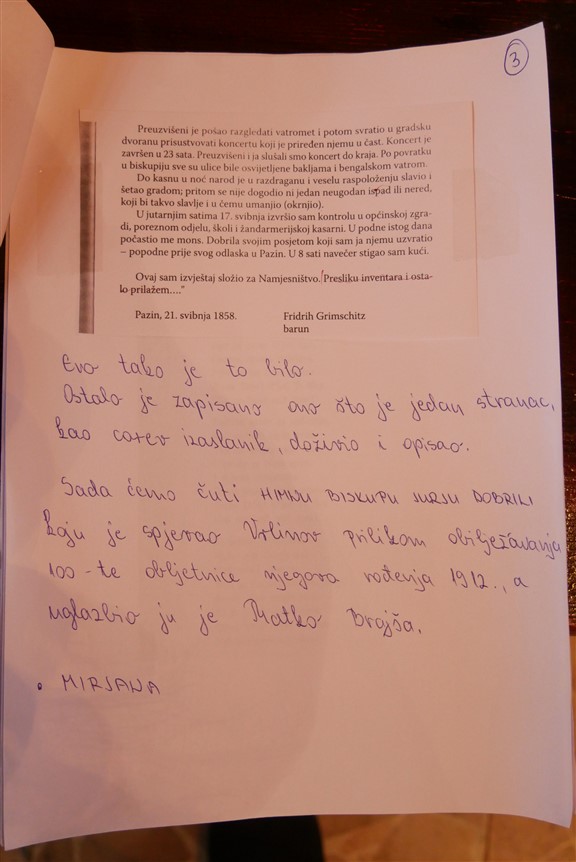 3
Preuzvišeni je pošao razgledati vatromet i potom svratio u gradsku
dvoranu prisustvovati koncertu koji je priređen njemu u čast. Koncert je
završen u 23 sata. Preuzvišeni i ja slušali smo koncert do kraja. Po povratku
u biskupiju sve su ulice bile osvijetljene bakljama i bengalskom vatrom.
Do kasnu u noć narod je u razdraganu i veselu raspoloženju slavio i
šetao gradom; pritom se nije dogodio ni jedan neugodan ispad ili nered,
koji bi takvo slavlje i u čemu umanjio (okrnjio).
U jutarnjim satima 17. svibnja izvršio sam kontrolu u općinskoj zgra-
di, poreznom odjelu, školi i žandarmerijskoj kasarni. U podne istog dana
počastio me mons. Dobrila svojim posjetom koji sam ja njemu uzvratio
– popodne prije svog odlaska u Pazin. U 8 sati navečer stigao sam kući.
Ovaj sam izvještaj složio za Namjesništvo. Presliku inventara i osta-
lo prilažem...."
Pazin, 21. svibnja 1858. Fridrih Grimschitz
barun
Evo tako je to bilo.
Ostalo je zapisano ono što je jedan stranac,
kao carev izaslanik, doživio i opisao.
Sada ćemo čuti HIMNU BISKUPU JURJU DOBRILI
koju je spjevao Vrlinov prilikom obilježavanja
100-te obljetnice njegova rođenja 1912., a
uglazbio ju je Matko Brajša.
• MIRJANA